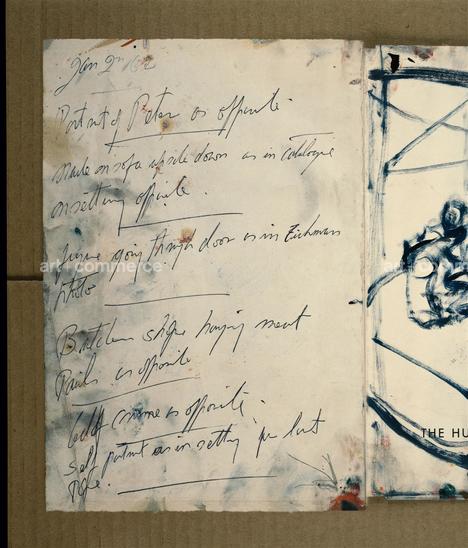 Jan 2nd 62
Portrait of Peter as opposite
on sofa upside down as in catalogue
in setting opposite.
figure going through door as in Eichmann
photo
Butchers shop hanging meat
as opposite
crime as opposite.
Self portrait as in setting for last
art+commerce
THE HU